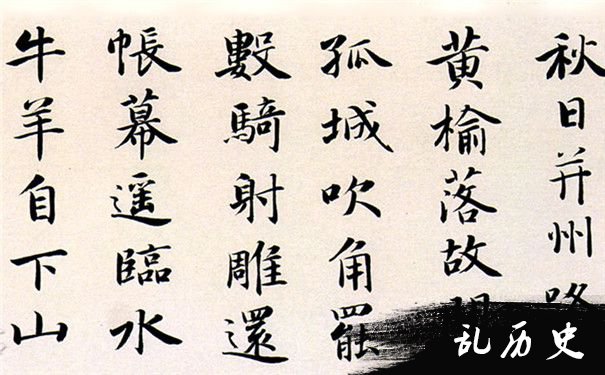 秋日并州路
黄榆落故關
孤城吹角罷
數騎射雕還
帳幕遥臨水
牛羊自下山
乱历史